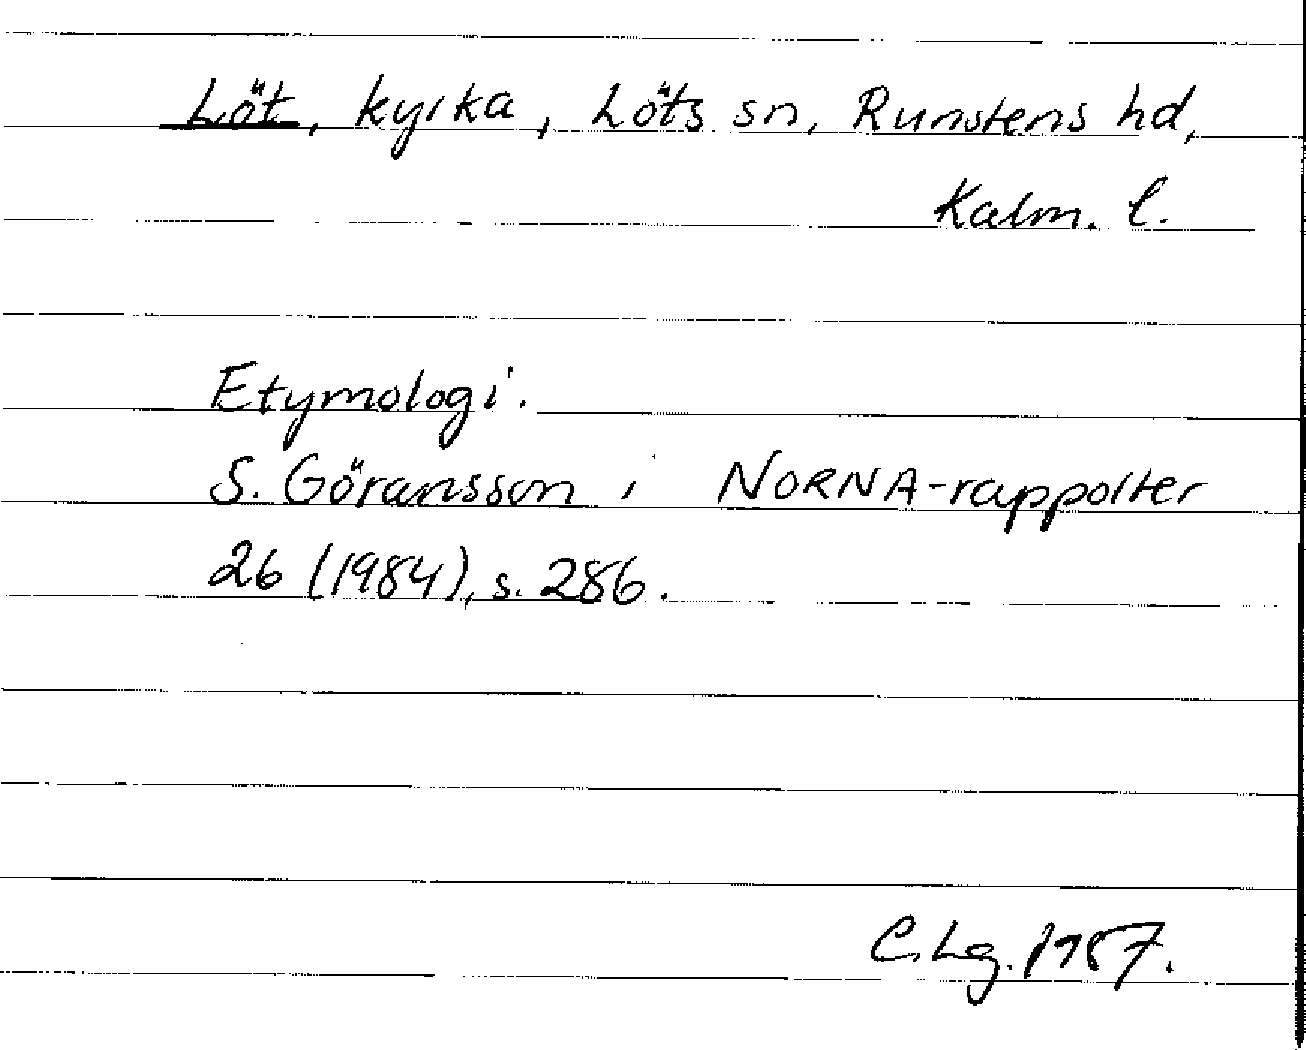 Löt, kyrka, Löts sn, Runstens hd,
Kalm. l.
Etymologi.
S. Göransson i NORNA-rapporter
26 (1984), s. 286.
C.Lg. 1987.